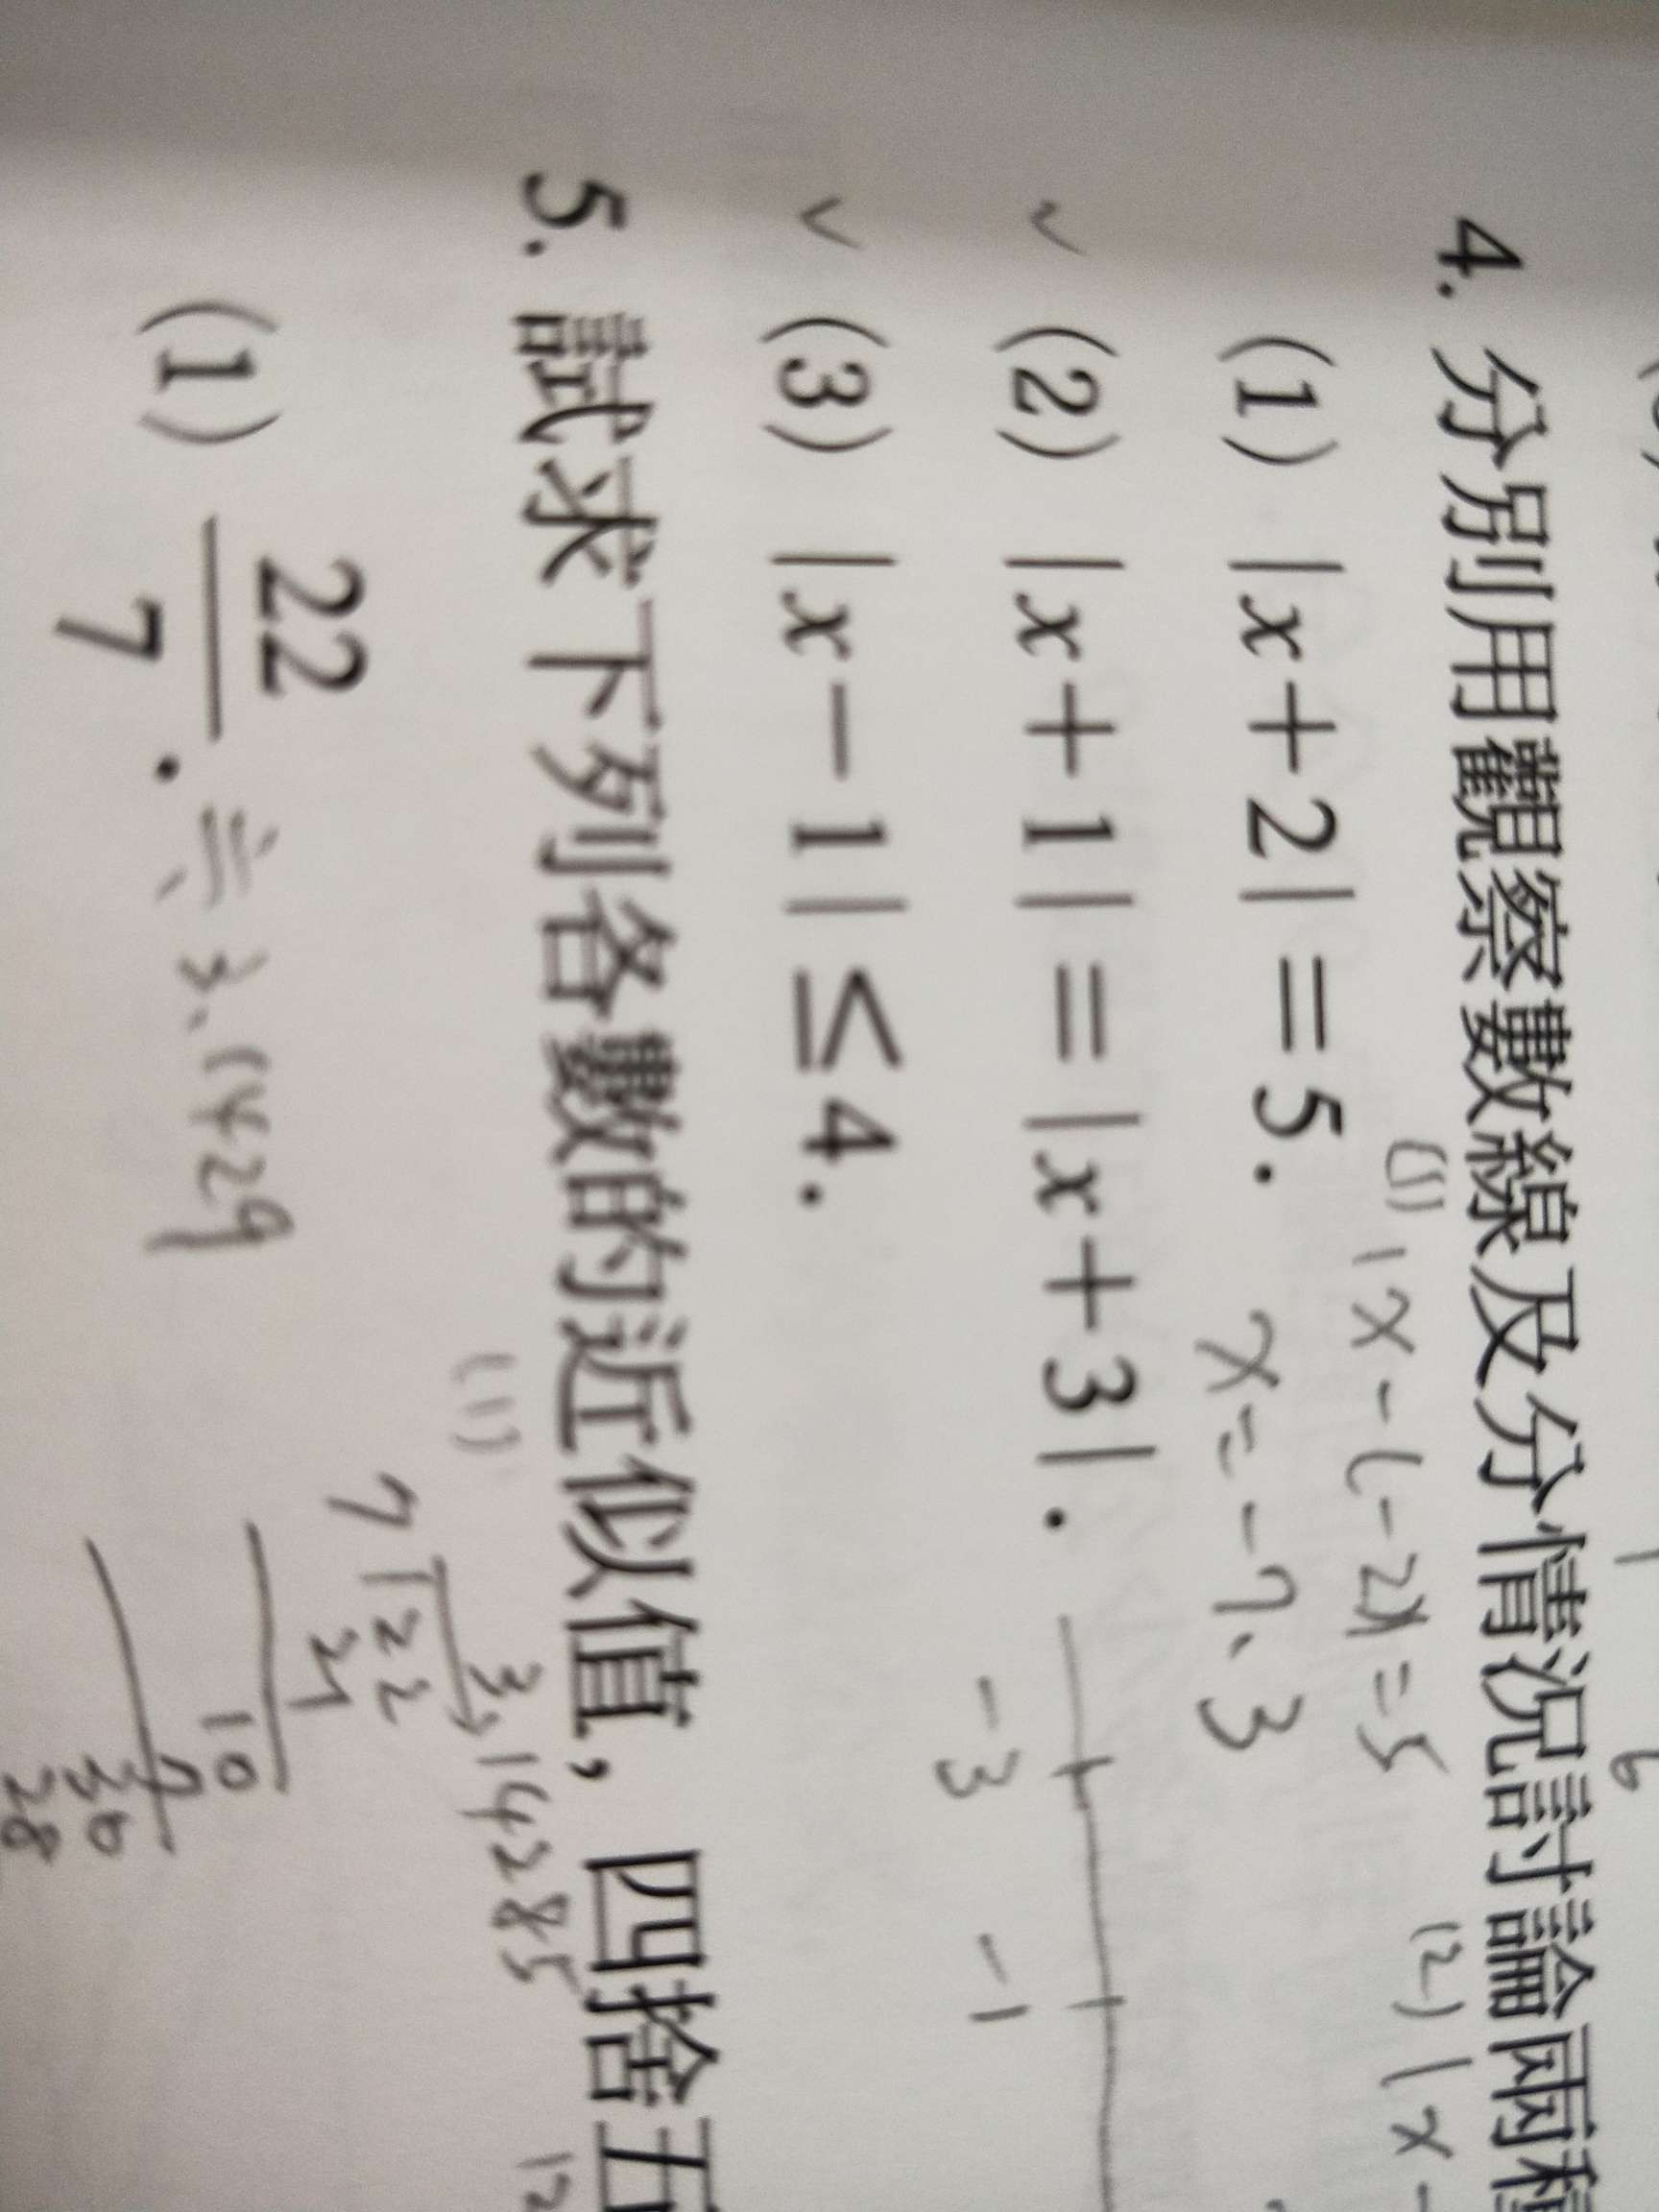 4. 分別用觀察數線及分情況討論兩種
(1) |x+2|=5.
(1) |x-(-2)|=5
x=-7、3
(2) |x-
(2) |x+1|=|x+3|.
-3 -1
(3) |x-1|≤4.
5. 試求下列各數的近似值，四捨五
(1) 22/7. ≒3.1429
(1)
3.14285
7 22
21
10
7
30
28
(2
6